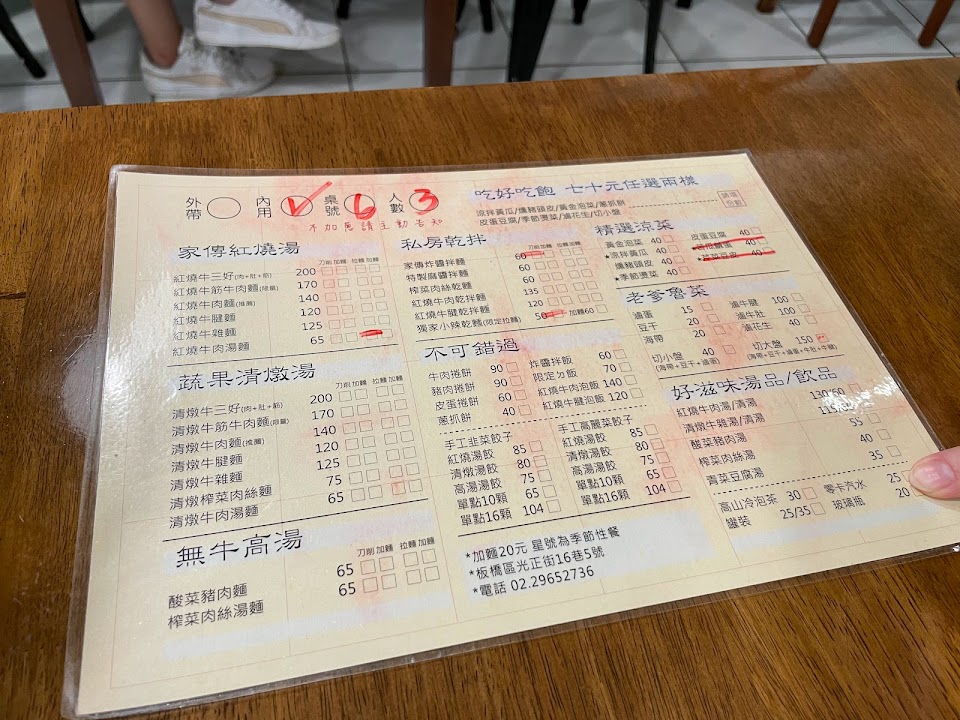 外帶 內用 V 桌號 6 人數 3
不加蔥請主動告知
家傳紅燒湯
刀削 加麵 拉麵 加麵
紅燒牛三好(肉+肚+筋) 200
紅燒牛筋牛肉麵(限量) 170
紅燒牛肉麵(推薦) 140
紅燒牛腱麵 120
紅燒牛雜麵 125
紅燒牛肉湯麵 65
蔬果清燉湯
刀削 加麵 拉麵 加麵
清燉牛三好(肉+肚+筋) 200
清燉牛筋牛肉麵(限量) 170
清燉牛肉麵(推薦) 140
清燉牛腱麵 120
清燉牛雜麵 125
清燉榨菜肉絲麵 75
清燉牛肉湯麵 65
無牛高湯
刀削 加麵 拉麵 加麵
酸菜豬肉麵 65
榨菜肉絲湯麵 65
私房乾拌
刀削 加麵 拉麵 加麵
家傳炸醬拌麵 60
特製麻醬拌麵 60
榨菜肉絲乾麵 60
紅燒牛肉乾拌麵 135
紅燒牛腱乾拌麵 120
獨家小辣乾麵(限定拉麵) 50 加麵60
不可錯過
牛肉捲餅 90 炸醬拌飯 60
豬肉捲餅 90 限定ㄉ飯 70
皮蛋捲餅 60 紅燒牛肉泡飯 140
蔥抓餅 40 紅燒牛腱泡飯 120
手工韭菜餃子
紅燒湯餃 85
清燉湯餃 80
高湯湯餃 75
單點10顆 65
單點16顆 104
手工高麗菜餃子
紅燒湯餃 85
清燉湯餃 80
高湯湯餃 75
單點10顆 65
單點16顆 104
*加麵20元 星號為季節性餐
*板橋區光正街16巷5號
*電話 02.29652736
吃好吃飽 七十元任選兩樣
涼拌黃瓜/燻豬頭皮/黃金泡菜/蔥抓餅
皮蛋豆腐/季節燙菜/滷花生/切小盤
精選涼菜
黃金泡菜 40 皮蛋豆腐 40
*涼拌黃瓜 40 40
燻豬頭皮 40 40
*季節燙菜 40
老爹魯菜
滷蛋 15 滷牛腱 100
豆干 20 滷牛肚 100
海帶 20 滷花生 40
切小盤 40 切大盤 150
(海帶+豆干+滷蛋) (海帶+豆干+滷蛋+牛肚+牛腱)
好滋味湯品/飲品
紅燒牛肉湯/清湯 130/60
清燉牛雜湯/清湯
酸菜豬肉湯 55
榨菜肉絲湯 40
青菜豆腐湯 35
高山冷泡茶 30 零卡汽水 25
罐裝 25/35 玻璃瓶 20